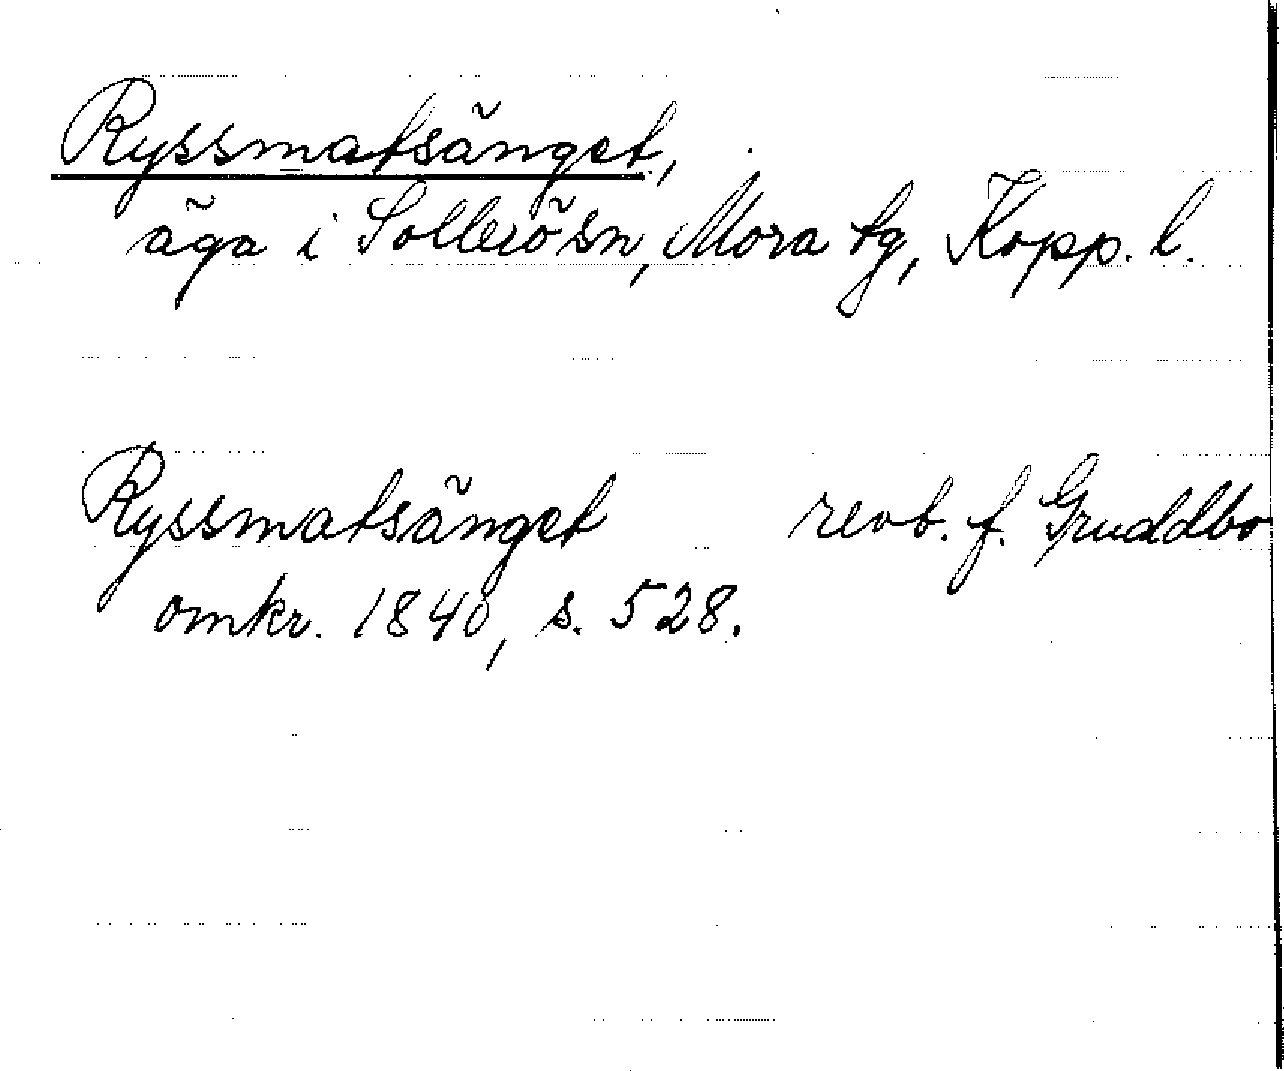 Ryssmatsänget,
äga i Sollerö sn, Mora tg, Kopp. l.
Ryssmatsänget revb. f. Gruddbo
omkr. 1840, s. 528.